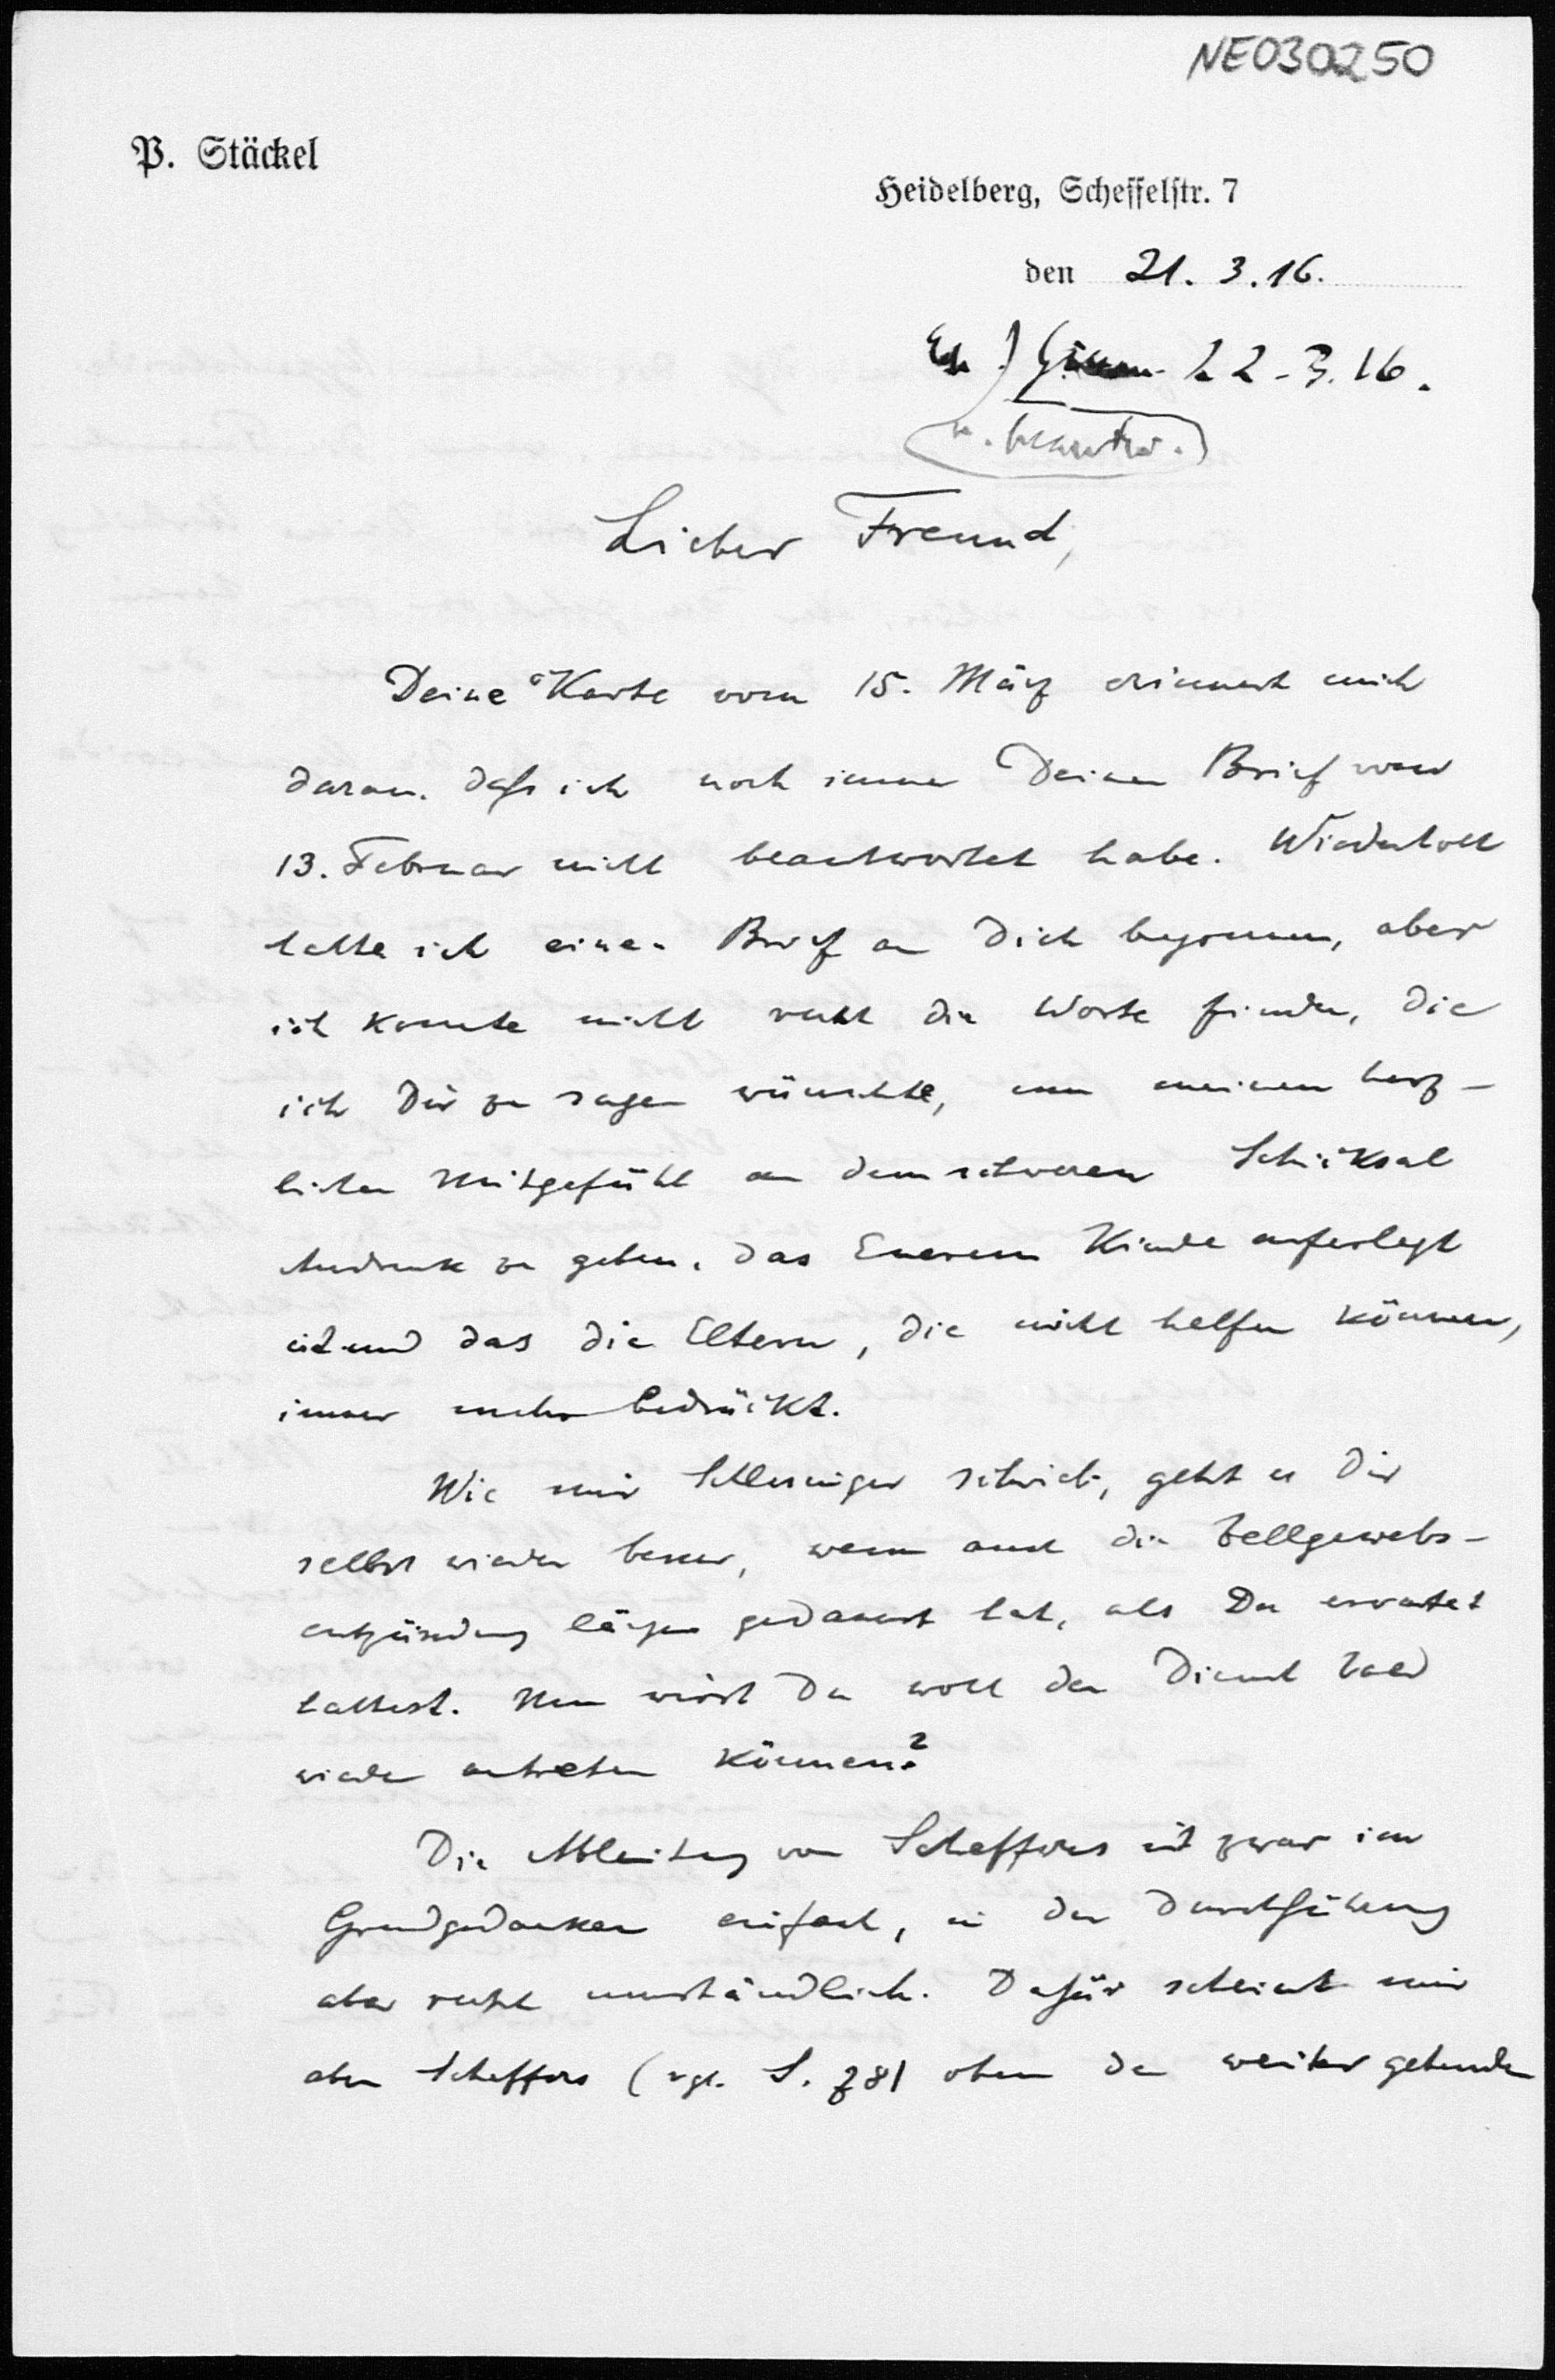 NE030250
P. Stäckel
Heidelberg, Scheffelstr. 7
den 21. 3. 16.
22-3.16.
u. beantw.
Lieber Freund,
Deine Karte vom 15. März erinnert mich
daran, daß ich noch immer Deinen Brief vom
13. Februar nicht beantwortet habe. Wiederholt
hatte ich einen Brief an Dich begonnen, aber
ich konnte nicht recht die Worte finden, die
ich Dir zu sagen wünschte, um meinem herz-
lichen Mitgefühl an dem schweren Schicksal
Ausdruck zu geben, das Euerem Kinde auferlegt
ist und das die Eltern, die nicht helfen können,
immer mehr bedrückt.
Wie mir Schlesinger schrieb, geht es Dir
selbst wieder besser, wenn auch die Zellgewebs-
entzündung länger gedauert hat, als Du erwartet
hattest. Nun wirst Du wohl den Dienst bald
wieder antreten können?
Die Ableitung von Scheffers ist zwar im
Grundgedanken einfach, in der Durchführung
aber recht umständlich. Dafür scheint mir
aber Scheffers (vgl. S. 781 oben den weiter gehenden